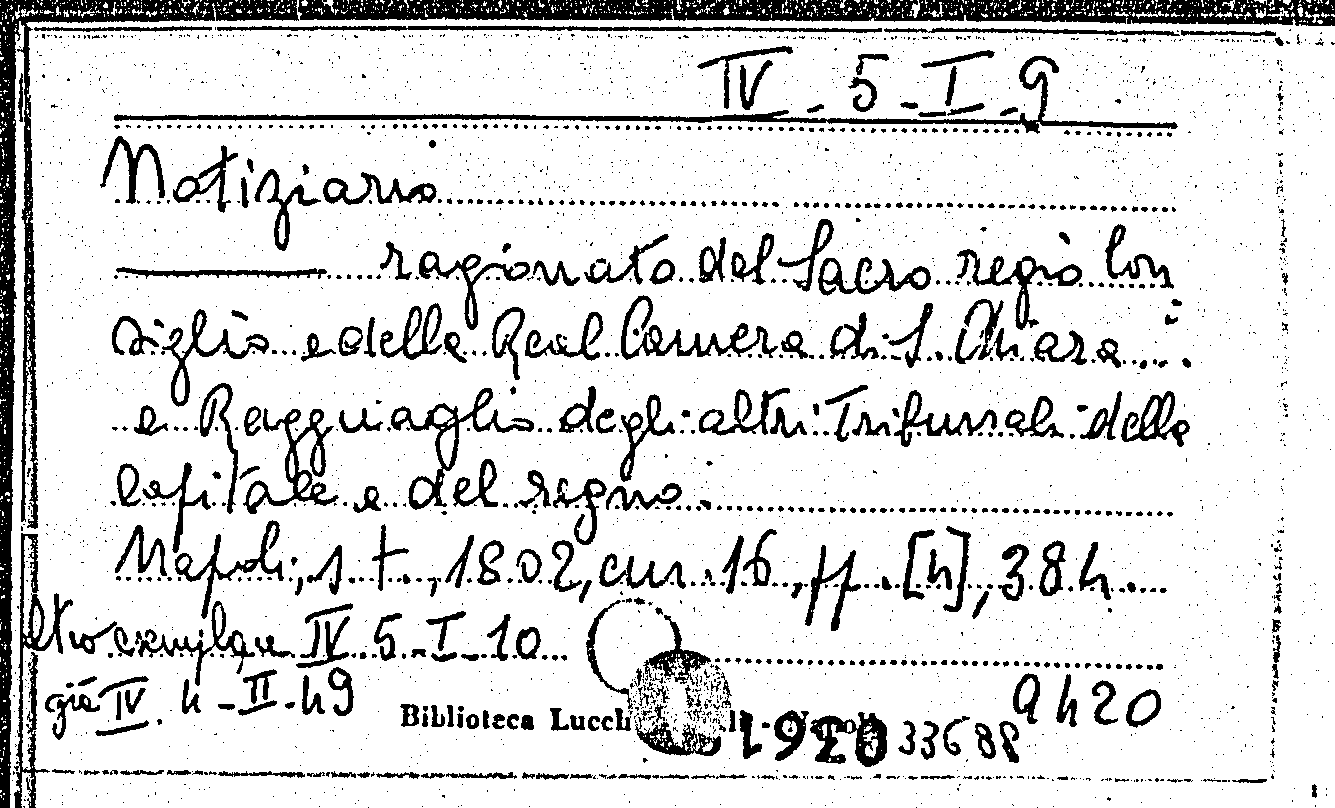 IV - 5 - I - 9
Notiziario
ragionato del Sacro regio Con
siglio e della Real Camera di S. Chiara ...
e Ragguaglio degli altri Tribunali della
Capitale e del regno.
Napoli, s. t., 1802, cm. 16, pp. [4], 384.
altro esemplare IV 5 - I - 10
già IV. 4 - II - 49
9420
Biblioteca Lucch - Napoli
33688